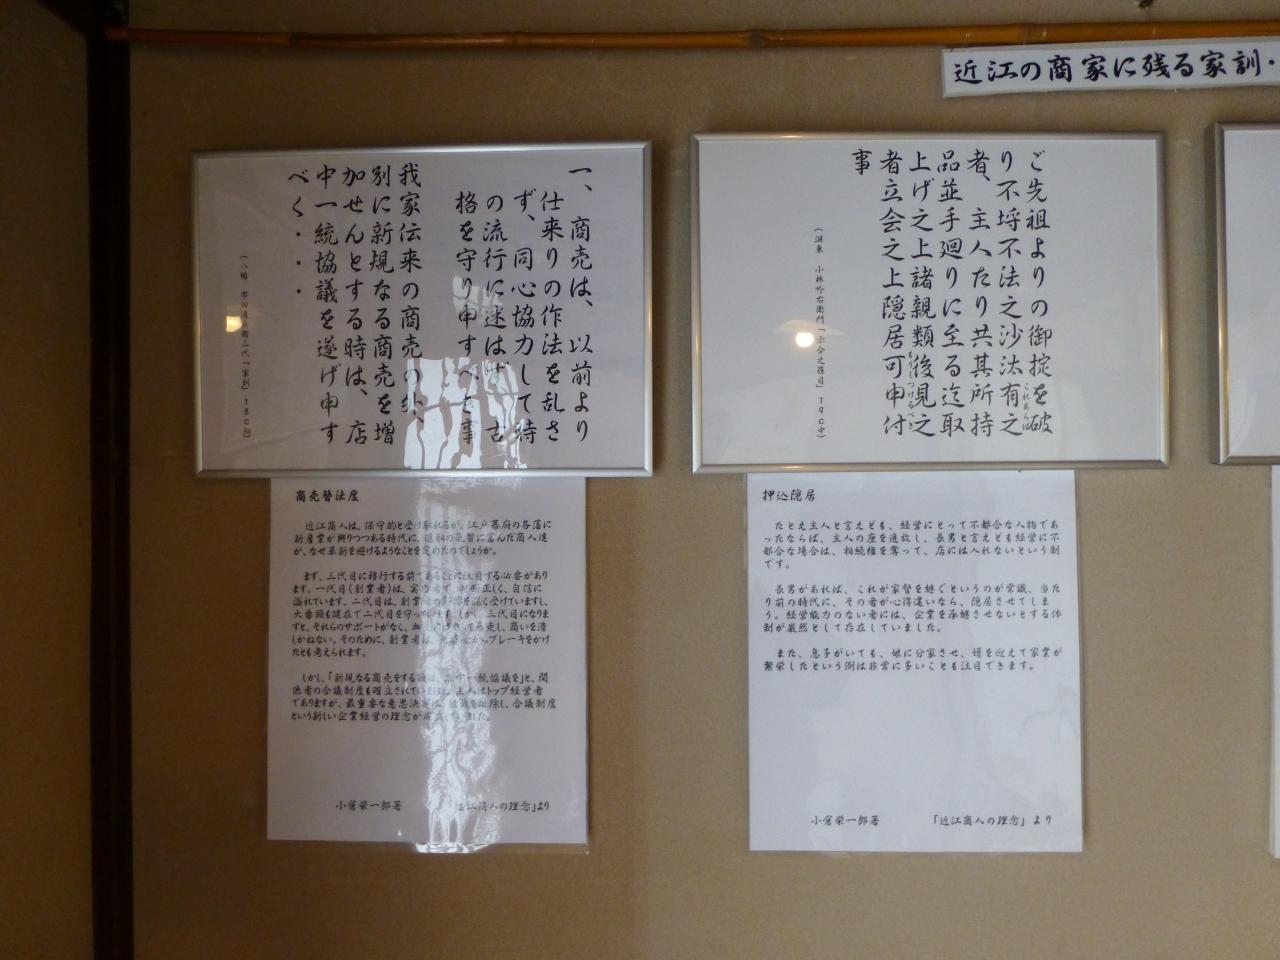 近江の商家に残る家訓・
一、商売は、以前より
仕来りの作法を乱さ
ず、同心協力して時
の流行に迷はず、古
格を守り申すべき事
我家伝来の商売の外、
別に新規なる商売を増
加せんとする時は、店
中一統協議を遂げ申す
べく・・・
(八幡 市田清兵衛三代「家訓」18C初)
商売替法度
近江商人は、保守的と受け取れるが、江戸幕府の各藩に
新産業が興りつつある時代に、進取の気質に富んだ商人達
が、なぜ革新を避けるようなことを定めたのでしょうか。
まず、三代目に移行する前であることに注目する必要があり
ます。一代目(創業者)は、実力者で、判断正しく、自信に
溢れています。二代目は、創業者の を深く受けていますし、
大番頭も健在で二代目を守っています。しかし、三代目になりま
すと、それらのサポートがなく、血気 って暴走し、商いを潰
しかねない。そのために、創業者は、 からブレーキをかけ
たとも考えられます。
しかし、「新規なる商売をする時は、店中一統協議を」と、関
係者の合議制度も確立されていました。主人はトップ経営者
でありますが、最重要な意思決定は、独裁を排除し、合議制度
という新しい企業経営の理念が成立していました。
小倉栄一郎著 「近江商人の理念」より
ご先祖よりの御掟を破
り不埒不法之沙汰有之
これあらば
者、主人たり共其所持
品並手廻りに至る迄取
上げ之上諸親類後見之
者立会之上隠居可申付
つけるべき
事
(湖東 小林吟右衛門「示合之條目」19C中)
押込隠居
たとえ主人と言えども、経営にとって不都合な人物であ
ったならば、主人の座を追放し、長男と言えども経営に不
都合な場合は、相続権を奪って、店には入れないという制
です。
長男があれば、これが家督を継ぐというのが常識、当た
り前の時代に、その者が心得違いなら、隠居させてしま
う。経営能力のない者には、企業を承継させないとする体
制が厳然として存在していました。
また、息子がいても、娘に分家させ、婿を迎えて家業が
繁栄したという例は非常に多いことも注目できます。
小倉栄一郎著 「近江商人の理念」より